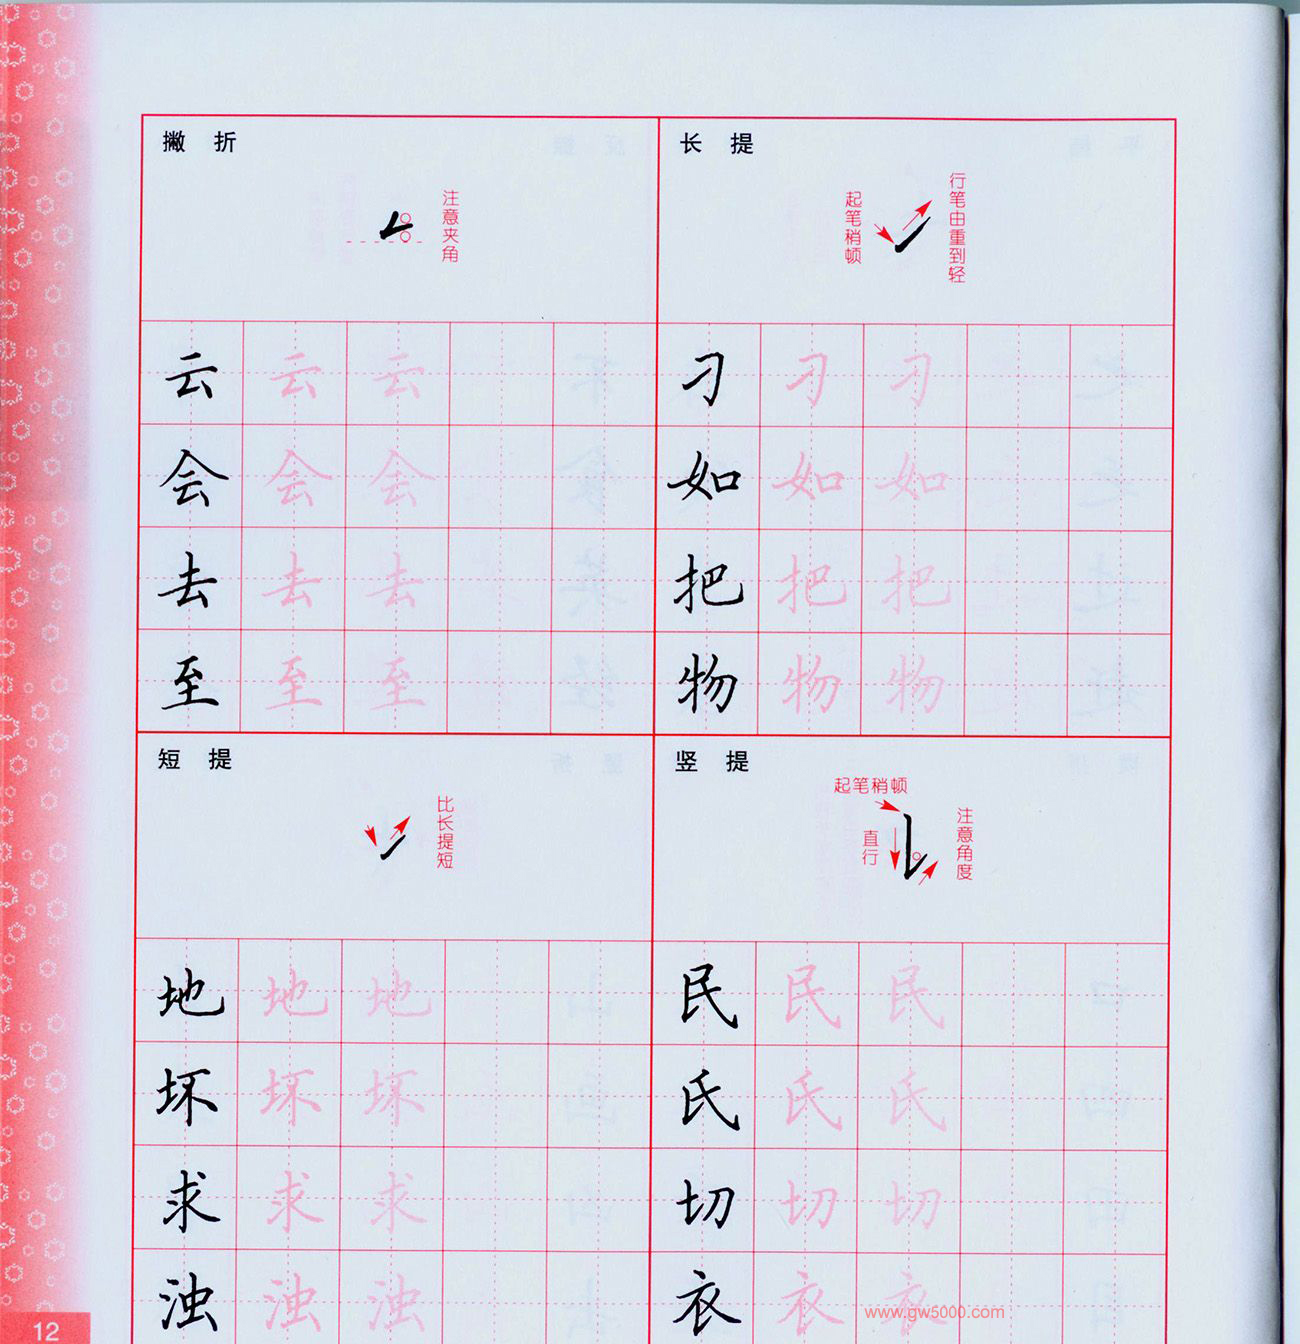 撇 折
注意夹角
云 云 云
会 会 会
去 去 去
至 至 至
长 提
起笔稍顿
行笔由重到轻
刁 刁 刁
如 如 如
把 把 把
物 物 物
短 提
比长提短
地 地 地
坏 坏 坏
求 求 求
浊 浊 浊
竖 提
起笔稍顿
直行
注意角度
民 民 民
氏 氏 氏
切 切 切
衣 衣 衣
www.gw5000.com
12